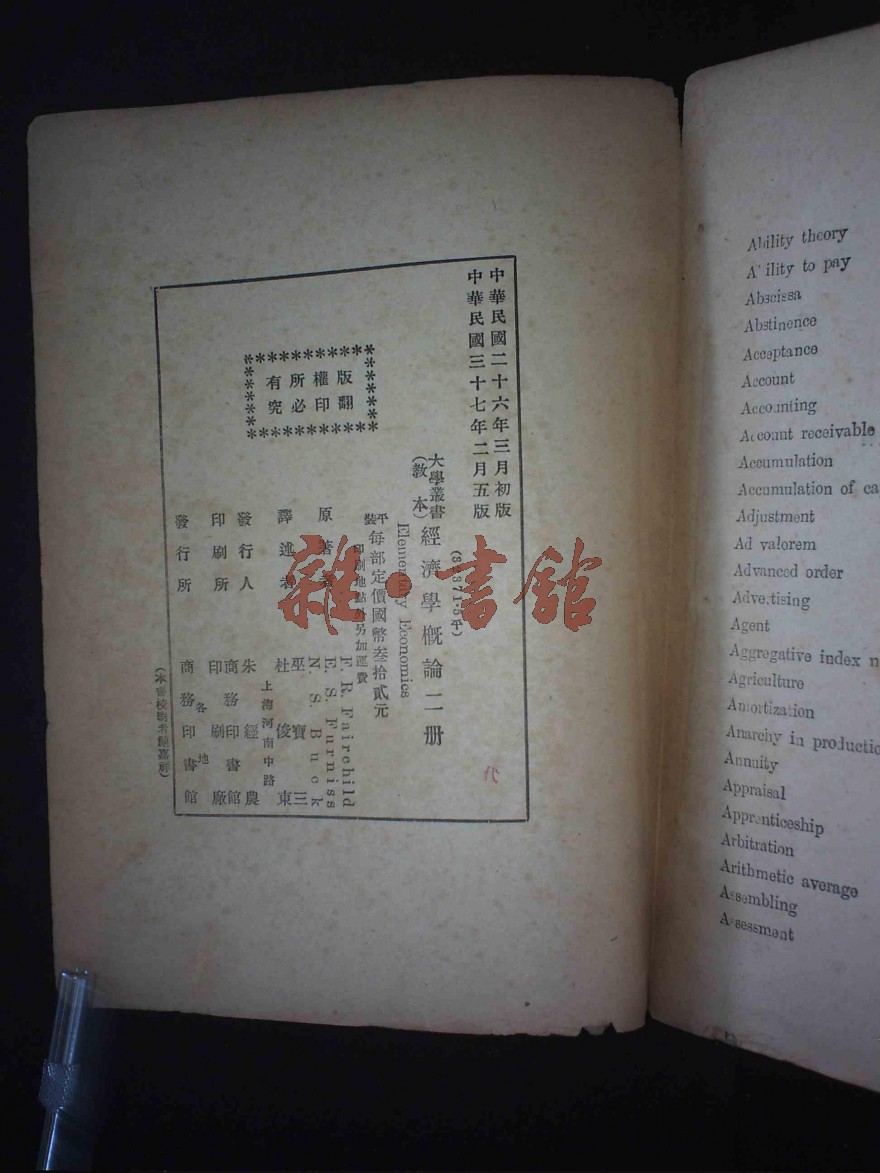 中華民國二十六年三月初版
中華民國三十七年二月五版
大學叢書
(教本)
經濟學概論二册
Elementary Economics
平裝
每部定價國幣叁拾貳元
印刷地點外另加運費
原著者
F. R. Fairchild
E. S. Furniss
N. S. Buck
譯述者
巫寶三
杜俊東
發行人
朱經農
上海河南中路
印刷所
商務印書館
印刷廠
發行所
各地
商務印書館
版權所有
翻印必究
雜·書館
Ability theory
A ility to pay
Abscissa
Abstinence
Acceptance
Account
Accounting
Account receivable
Accumulation
Accumulation of ca
Adjustment
Ad valorem
Advanced order
Adve.tising
Agent
Aggregative index n
Agriculture
Amortization
Anarchy in productio
Annuity
Appraisal
Apprenticeship
Arbitration
Arithmetic average
Assembling
Assessment